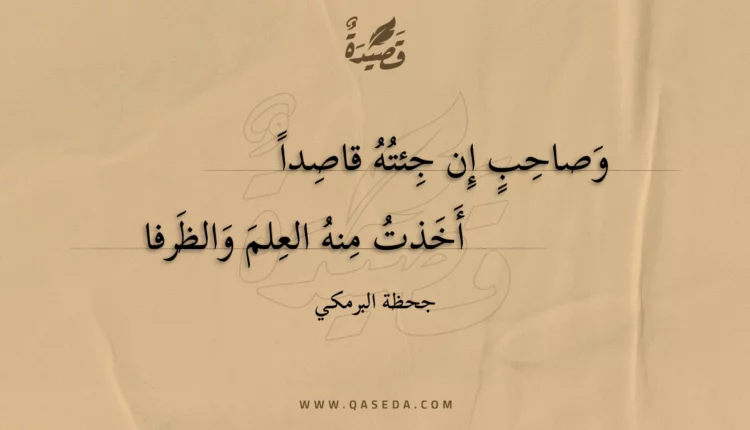 قَصِيدَةٌ
وَصاحِبٍ إِن جِئتُهُ قاصِداً
أَخَذتُ مِنهُ العِلمَ وَالظَرفا
جحظة البرمكي
WWW.QASEDA.COM